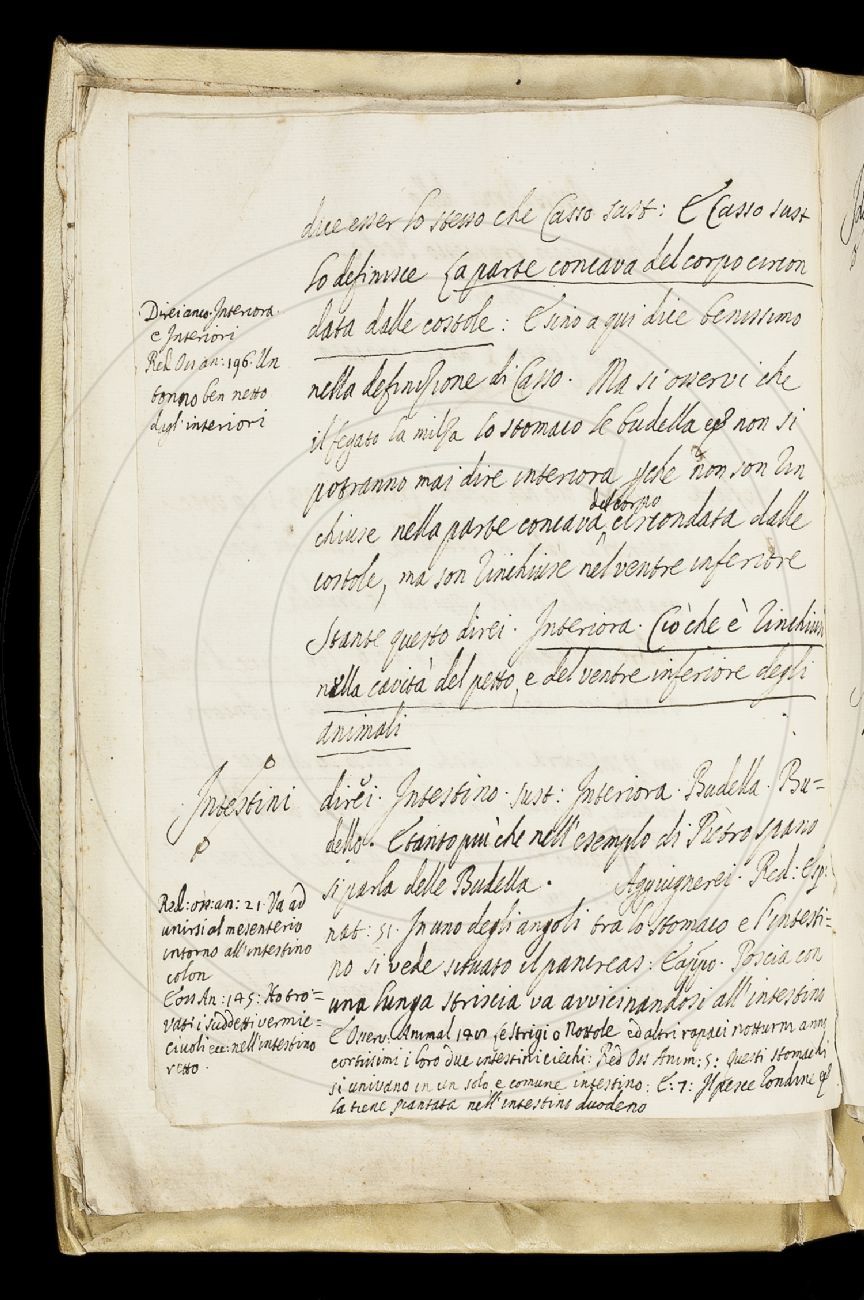 dice esser lo stesso che Casso sust: E Casso sust
lo definisce La parte concava del corpo circon
data dalle costole: E sino a qui dice benissimo
nella definizione di Casso. Ma si osservi che
il fegato la milza lo stomaco le budella non si
potranno mai dire interiora che non son rin
del corpo
chiuse nella parte concava circondata dalle
costole, ma son rinchiuse nel ventre inferiore
Stante questo direi. Interiora. Ciò che è rinchiuso
nella cavità del petto, e del ventre inferiore degli
animali
Direi anco. Interiora.
e Interiori
Red. Oss an: 196. Un
tonno ben netto
degli interiori
Intestini
direi. Intestino. sust: Interiora. Budella. Bu=
dello. E tanto più che nell'esempio di Pietro spano
si parla delle Budella. Aggiugnerei. Red: Esp:
nat: 51. In uno degli angoli tra lo stomaco e l'intesti=
no si vede situato il pancreas: E appo. Poscia con
una lunga striscia va avvicinandosi all'intestino
E Osserv: Animal Le strigi o Nottole ed altri rapaci notturni anno
cortissimi i loro due intestini ciechi: Red Oss Anim: 5: Questi stomachi
si univano in un solo e comune intestino: E: 7: Il pesce rondine
la tiene piantata nell'intestino duodeno
Red: oss: an: 21. Va ad
unirsi al mesenterio
intorno all'intestino
colon
E oss An: 145: Ho tro=
vati i suddetti vermic=
ciuoli ecc: nell'intestino
retto.